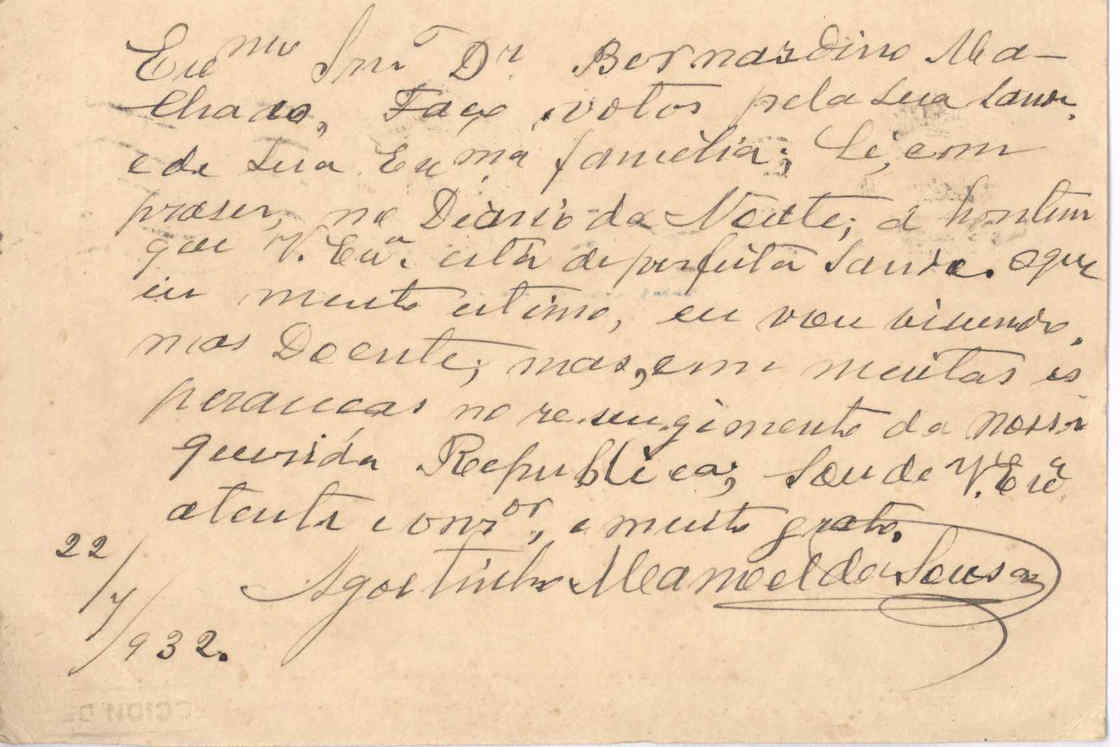 Exmo Snr Dr Bernardino Ma-
chado, Faço votos pela sua saude,
e de sua Exma familia; Li, com
praser, no Diario da Noute, d hontem
que V. Exa. está de perfeita saude. o que
eu muito estimo, eu vou vivendo,
mas Doente; mas, com muitas es
peranças no resurgimento da nossa
querida Republica; Sou de V. Exa
atento e onr.or, e muito grato,
Agostinho Manoel de Sousa
22/7/932.